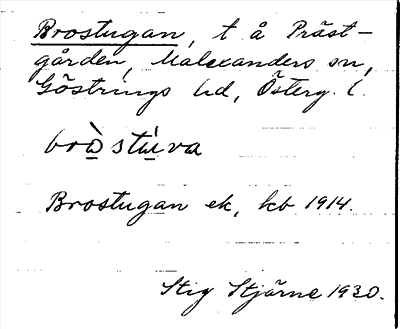 Brostugan, t å Präst-
gården, Malexanders sn,
Göstrings hd, Österg. l.
broòstúva
Brostugan ek, kb 1914.
Stig Stjärne 1930.